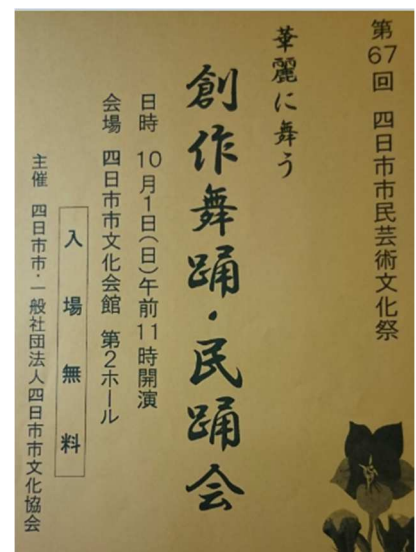 第67回 四日市市民芸術文化祭
華麗に舞う
創作舞踊・民踊会
日時 10月1日(日)午前11時開演
会場 四日市市文化会館 第2ホール
入場無料
主催 四日市市・一般社団法人四日市市文化協会